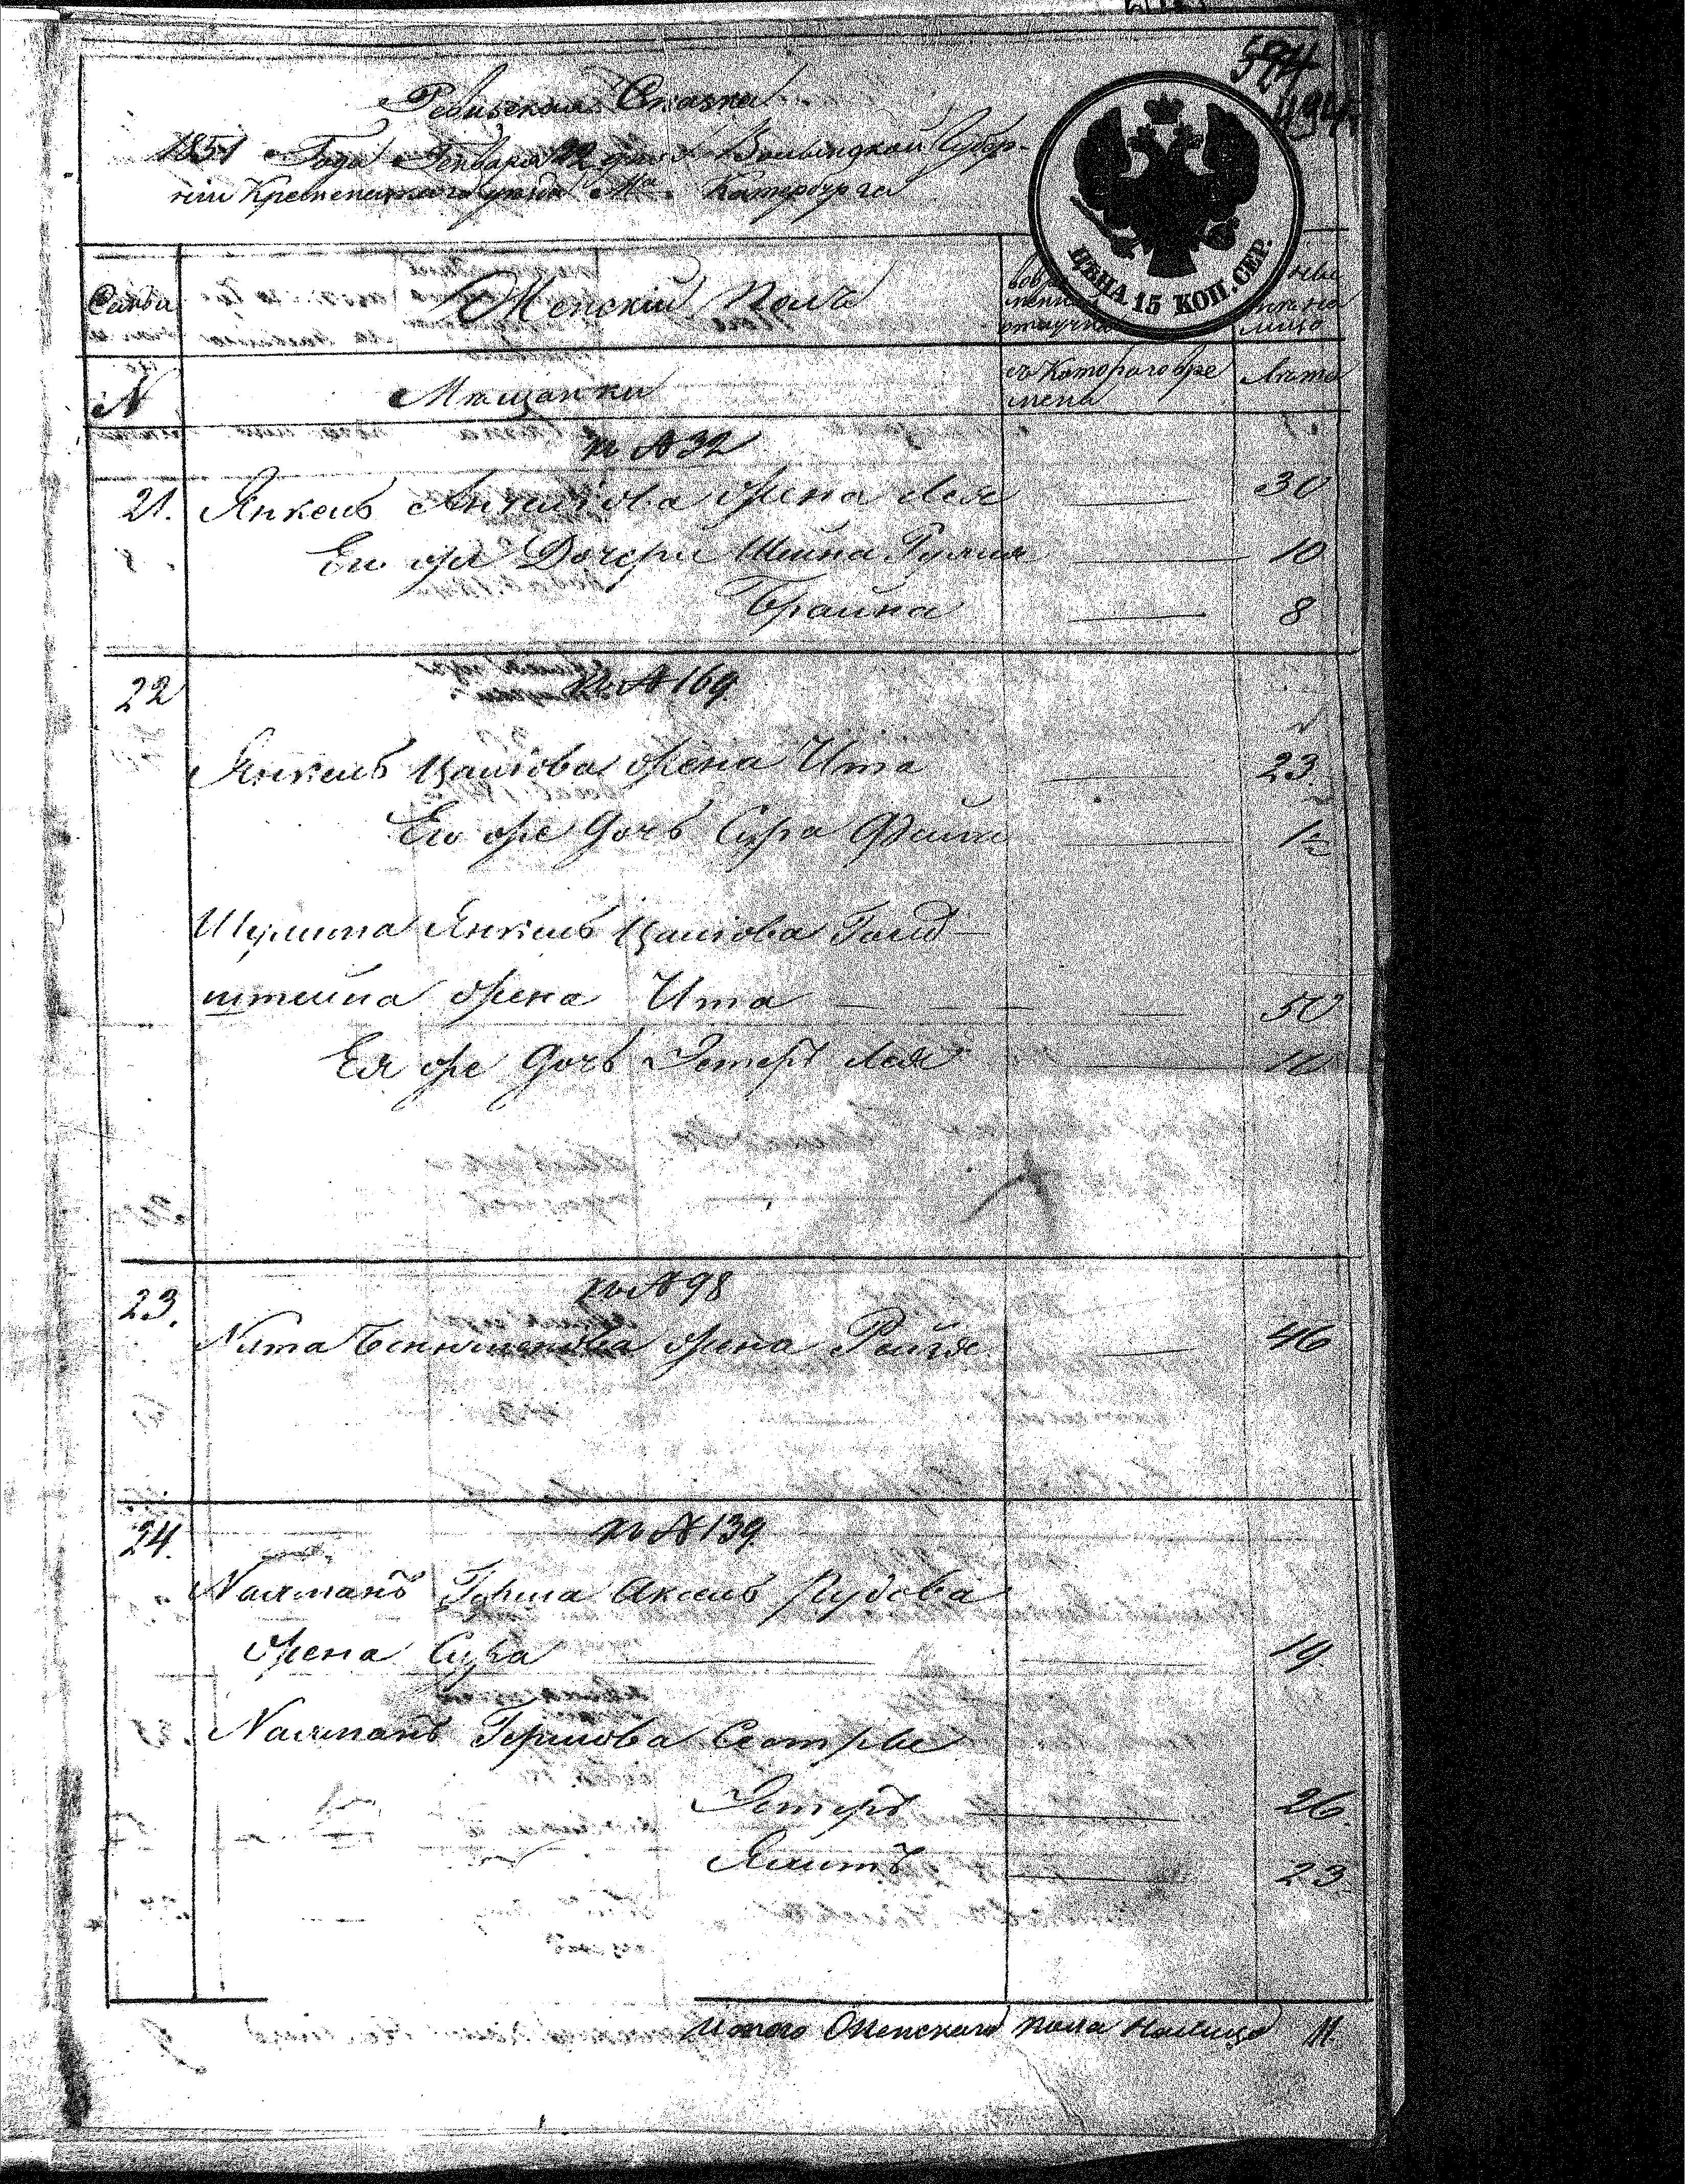 594
494
Ревизская Сказка
1851 Года Генваря 22 дня Волынской Губер-
ніи Кременецкаго уезда Мª. Катербурга
ЦѢНА 15 КОП. СЕР.
Семьи
Женскій Полъ
вовре
менной
отлучке
лицо
N
Мѣщанки
съ Котораго вре
мена
Лѣта
къ № 32
21. Янкель Анчелёва жена Лея — 30
Его же Дочери Шейна Рухля — 10
Брайна — 8
22
къ № 169.
Янкель Цалёва жена Ита — 23.
Его же дочь Сура — 1½
Шулима Янкель Цалёва Голд-
штейна жена Ита — 50
Ея же дочь Эстеръ Лея — 10
23.
къ № 98
Нута Бенюменова жена Рейзя — 46
24.
къ № 139.
Нахманъ Герша Аксель Рудова
жена Сура — 19
Нахманъ Гершова Сестры
Эстеръ — 26.
— 23
Итого Женскаго пола Налицо 11.